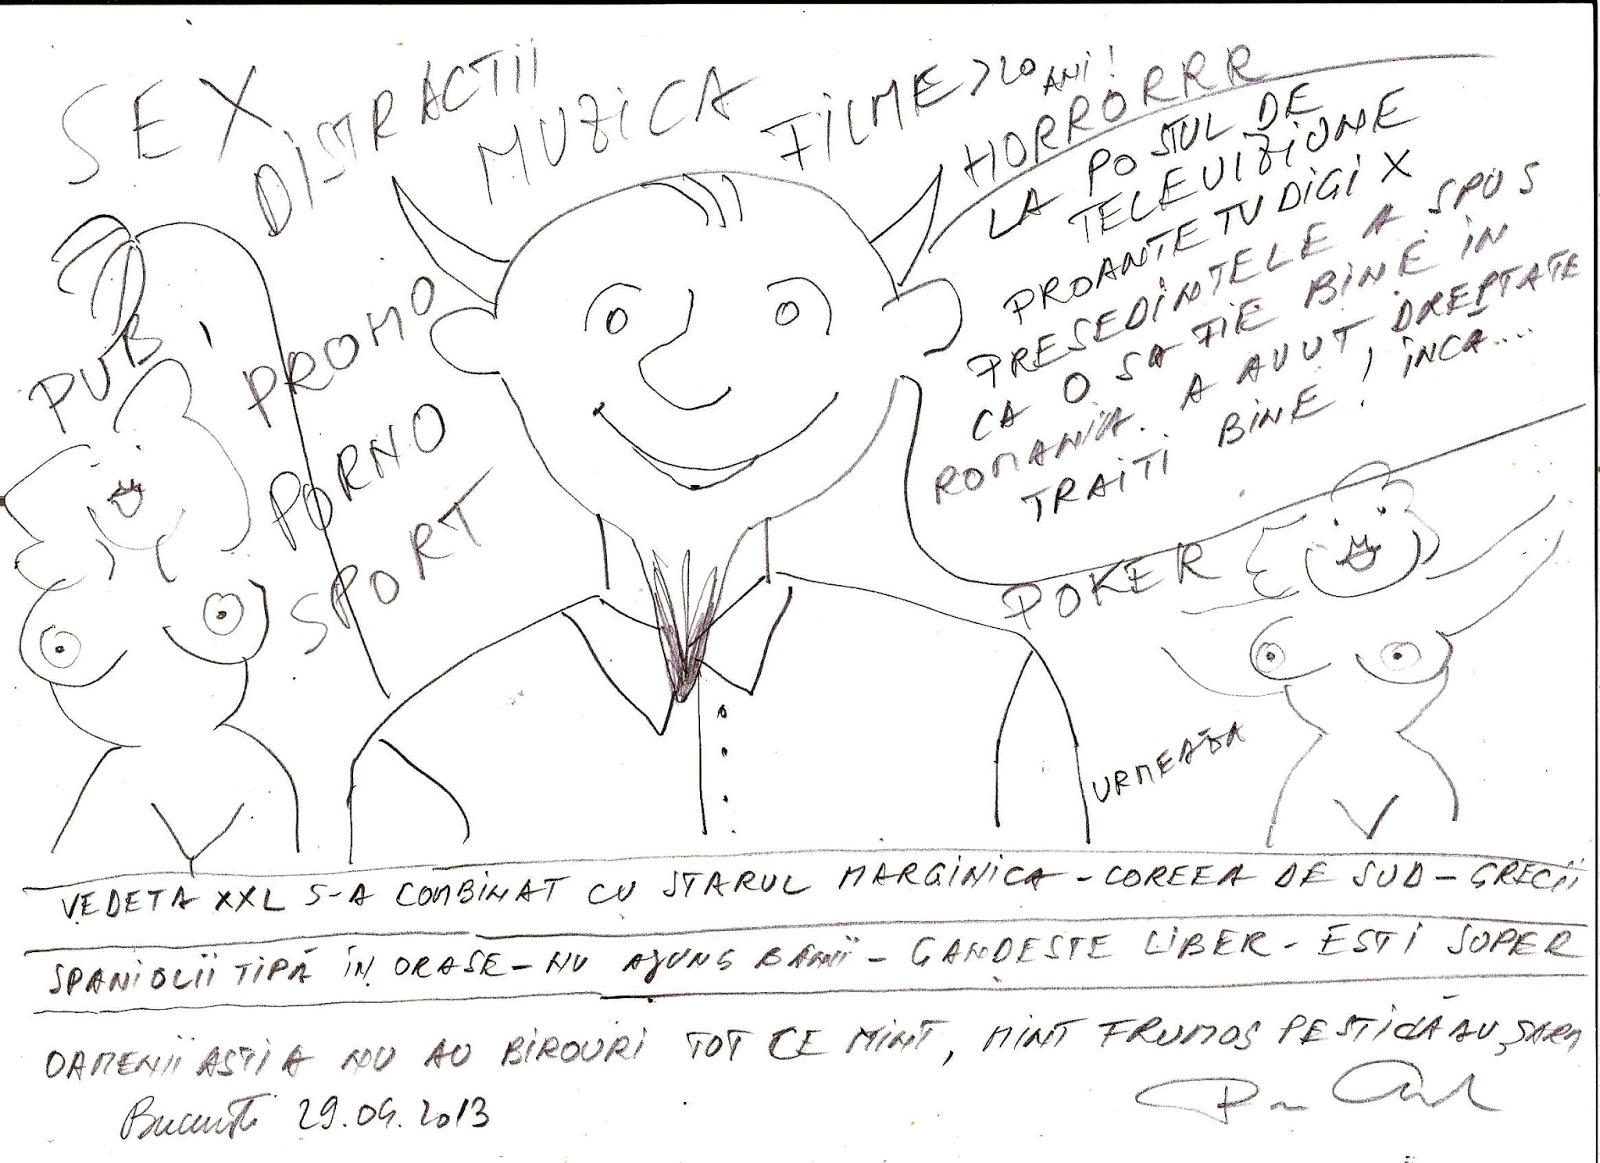 SEX
DISTRACTII
MUZICA
FILME > 20 ANI!
HORRORRR
LA POSTUL DE
TELEVIZIUNE
PROANTETV DIGI X
PRESEDINTELE A SPUS
CA O SA FIE BINE IN
ROMANIA. A AVUT DREPTATE
TRAITI BINE! INCA...
PUB,
PROMO
PORNO
SPORT
POKER
URMEAZA
VEDETA XXL S-A COMBINAT CU STARUL MARGINICA - COREEA DE SUD - GRECII
SPANIOLII TIPĂ IN ORASE - NU AJUNG BANII - GANDESTE LIBER - ESTI SUPER
OAMENII ASTIA NU AU BIROURI TOT CE MINT, MINT FRUMOS
29.04.2013